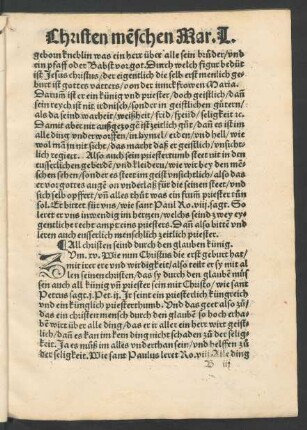 Christen mēschen Mar. L.
geborn kneblin was ein herr über alle sein brüder/vnd
ein pfaff oder Babst vor got. Durch welch figur bedüt
ist Jesus christus/der eigentlich die selb erst menlich ge-
burt ist gottes vatters/von der iunckfrowen Maria.
Darum̄ ist er ein künig vnd priester/doch geistlich/dan̄
sein reych ist nit irdnisch/sonder in geistlichen gütern/
als da seind warheit/weißheit/frid/freüd/seligkeit ꝛc.
Damit aber nit außgezogē ist zeitlich güt/dan̄ es ist im
alle ding vnderworffen/in hymel/erden/vnd hell/wie
wol mā in nit sicht/das macht daß er geistlich/vnsicht-
lich regiert. Also auch sein priesterthumb steet nit in den
eüsserlichen geberdē/vnd kleidern/wie wir bey den mē-
schen sehen/sonder es steet im geist vnsichtlich/also das
er vor gottes augē on vnderlaß für die seinen steet/vnd
sich selb opffert/vn̄ alles thüt was ein frum̄ priester tün
sol. Er bittet für vns/wie sant Paul Ro. viij. sagt. So
leret er vns inwendig im hertzen/welchs seind zwey ey-
gentliche recht ampt eins priesters. Dan̄ also bittē vnd
leren auch eüsserlich menschlich zeitlich priester.
¶ All christen seind durch den glauben künig.
Zum. xv. Wie nun Christus die erst geburt hat/
mit irer ere vnd wirdigkeit/also teilt er sy mit al
len seinen christen/das sy durch den glaubē müs
sen auch all künig vn̄ priester sein mit Christo/wie sant
Petrus sagt. j. Pet. ij. Ir seint ein priesterlich küngreich
vnd ein künglich priesterthumb. Vnd das geet also zü/
das ein christen mensch durch den glaubē so hoch erha-
ben wirt über alle ding/das er ir aller ein herr wirt geist-
lich/dan̄ es kan im kein ding nit schaden zü der selig-
keit. Ja es müß im alles vnderthan sein/vnd helffen zü
der seligkeit. Wie sant Paulus leret Ro. viij. Alle ding
B iij